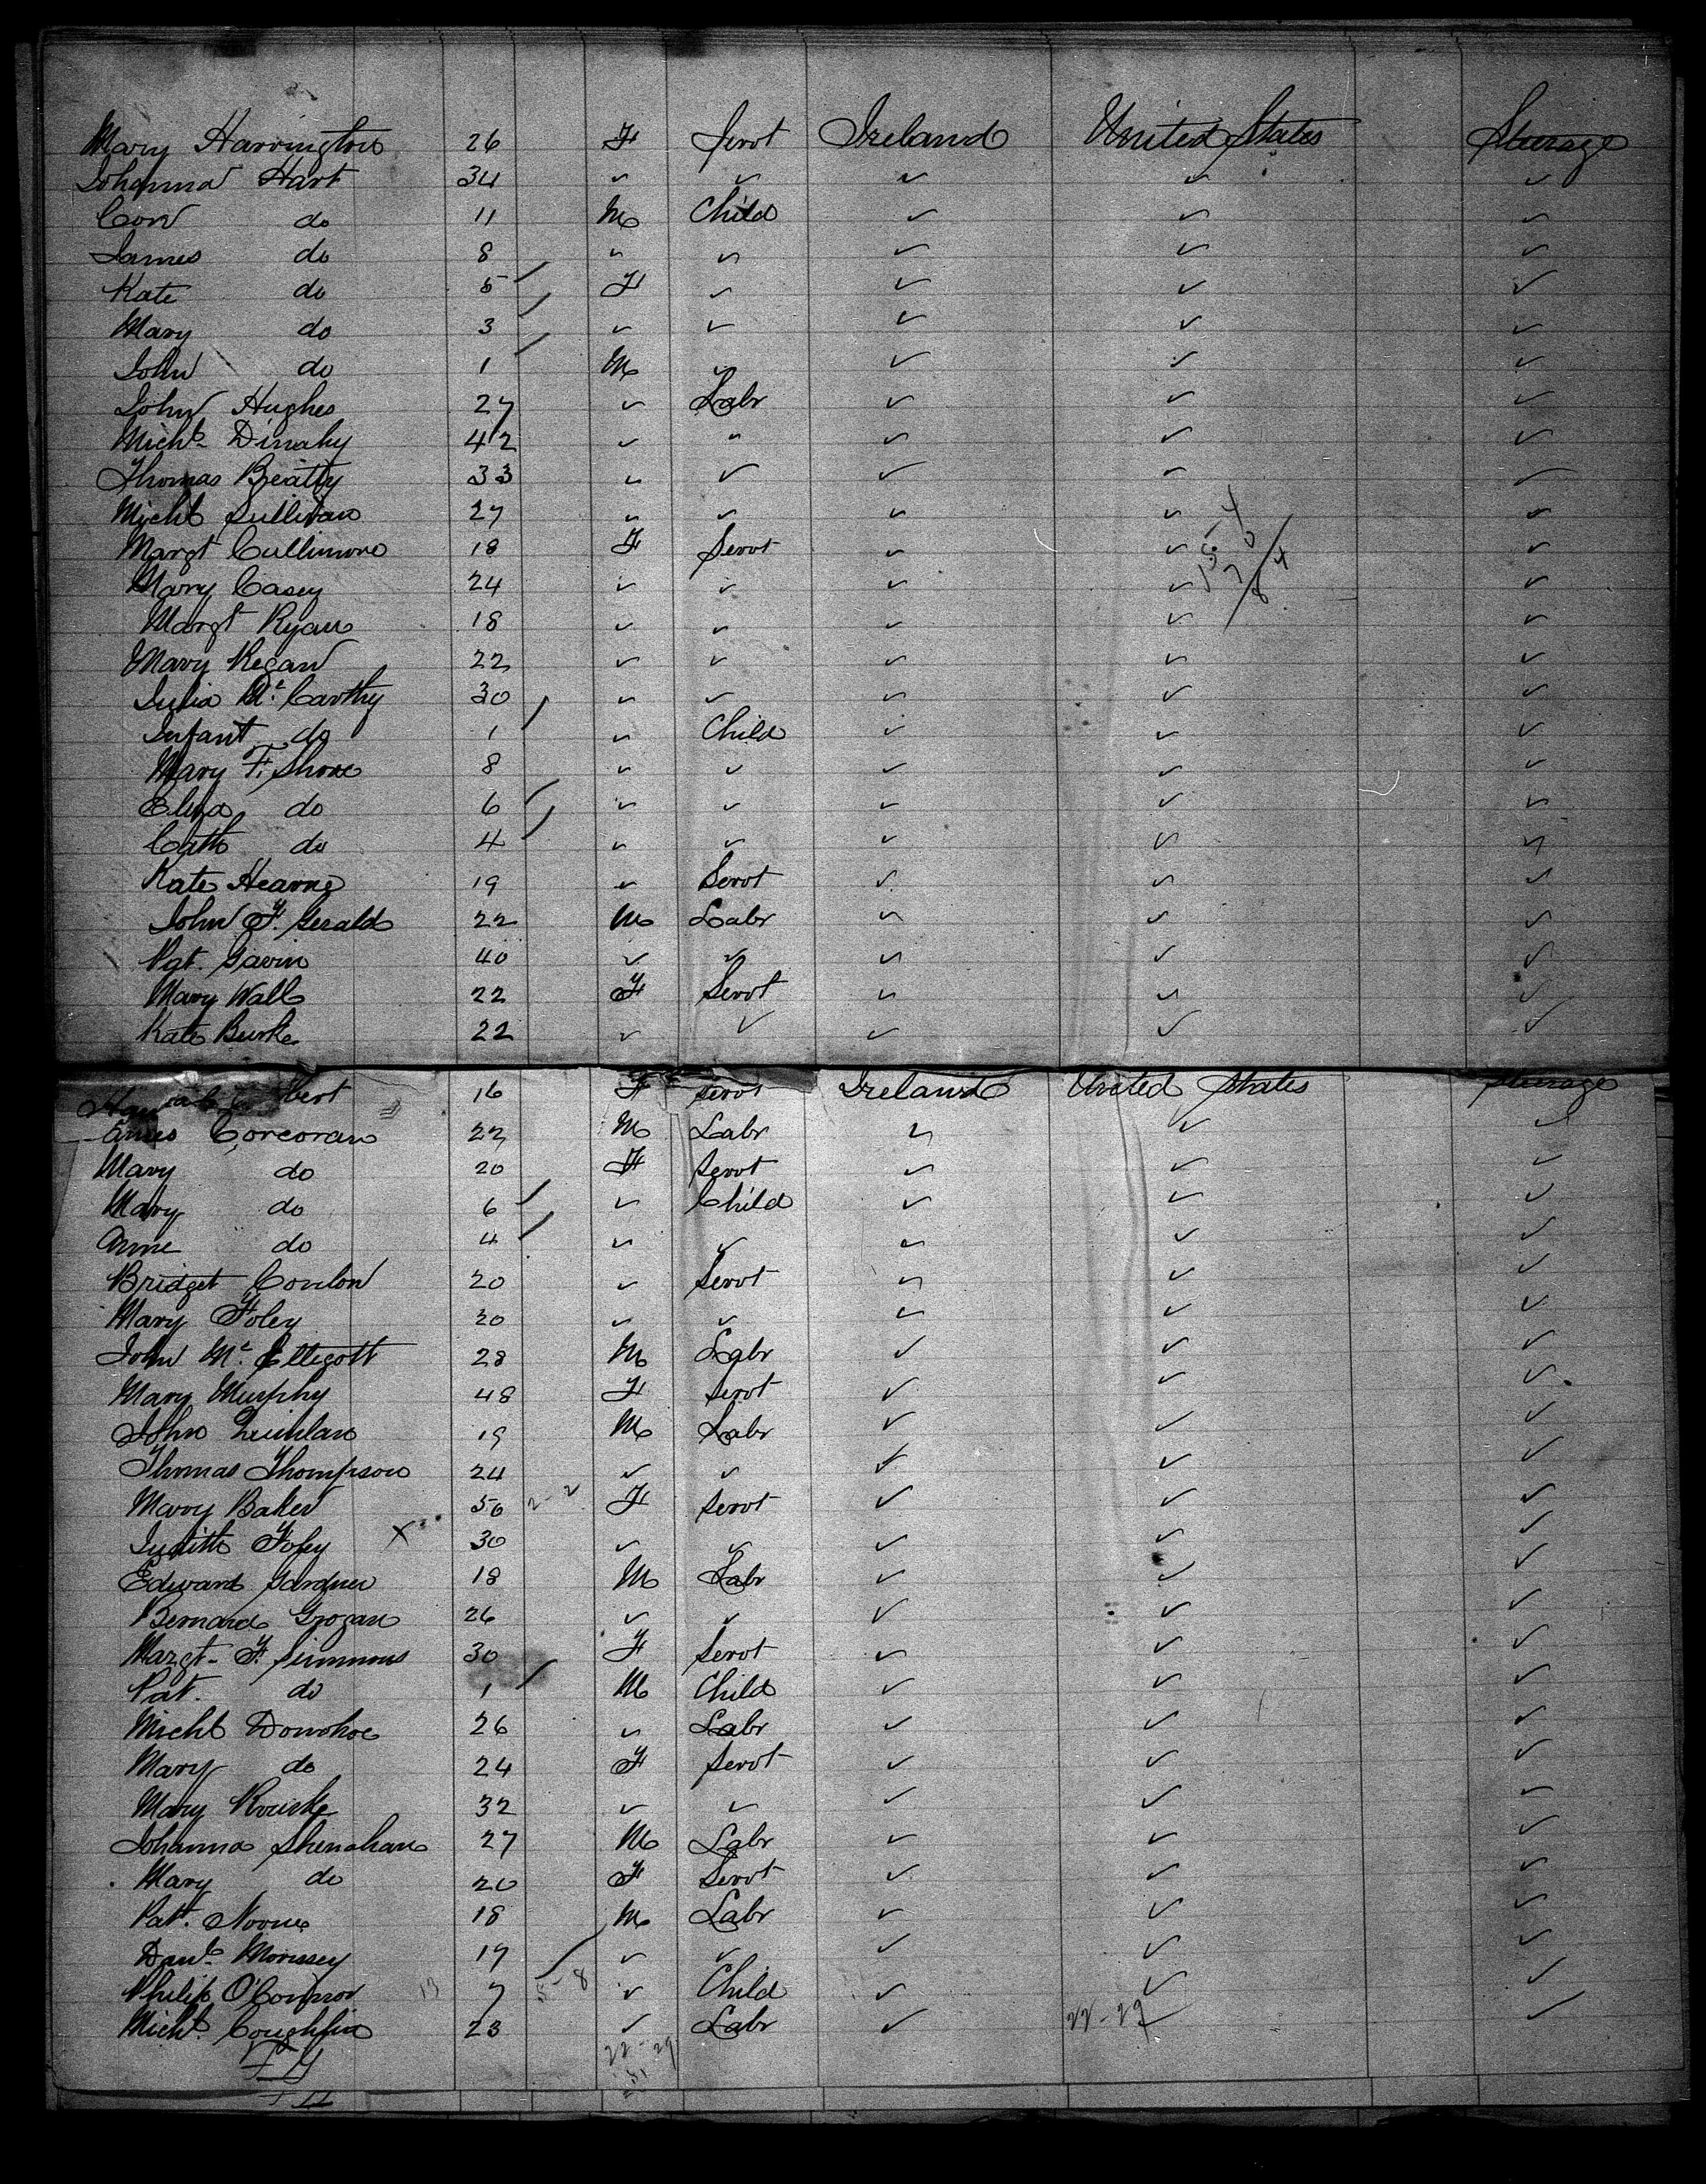 Mary Harrington 26 F Servt Ireland United States Steerage
Johanna Hart 34 " " " " "
Con do 11 M Child " " "
James do 8 " " " " "
Kate do 5 / F " " " "
Mary do 3 / " " " " "
John do 1 / M " " " "
John Hughes 27 " Labr " " "
Michl Dinahy 42 " " " " "
Thomas Beatty 33 " " " " "
Michl Sullivan 27 " " " " "
Margt Cullimore 18 F Servt " " "
Mary Casey 24 " " " " "
Margt Ryan 18 " " " " "
Mary Regan 22 " " " " "
Julia Mc Carthy 30 " " " " "
Infant do 1 / " Child " " "
Mary F. Shone 8 " " " " "
Eliza do 6 / " " " " "
Cath do 4 / " " " " "
Kate Hearne 19 " Servt " " "
John F. Gerald 22 M Labr " " "
Pat. Gavin 40 " " " " "
Mary Wall 22 F Servt " " "
Kate Burke 22 " " " " "
16 F Servt Ireland United States Steerage
James Corcoran 22 M Labr " " "
Mary do 20 F Servt " " "
Mary do 6 / " Child " " "
Anne do 4 / " " " " "
Bridget Conlon 20 " Servt " " "
Mary Foley 20 " " " " "
John Mc Elligott 28 M Labr " " "
Mary Murphy 48 F Servt " " "
John Quinlan 19 M Labr " " "
Thomas Thompson 24 " " " " "
Mary Baker 50 2-2 F Servt " " "
Judith Foley X 30 " " " " "
Edward Gardner 18 M Labr " " "
Bernard Grogan 26 " " " " "
Margt F. Simmons 30 F Servt " " "
Pat. do 1 / M Child " " "
Michl Donohoe 26 " Labr " " "
Mary do 24 F Servt " " "
Mary Rourke 32 " " " " "
Johanna Shenahan 27 M Labr " " "
Mary do 20 F Servt " " "
Patt. Noone 18 M Labr " " "
Danl Morissey 19 " " " " "
Philip O'Connor 13 7 5-8 " Child " " "
Michl Coughlin 23 " Labr " 22-29 "
22-29